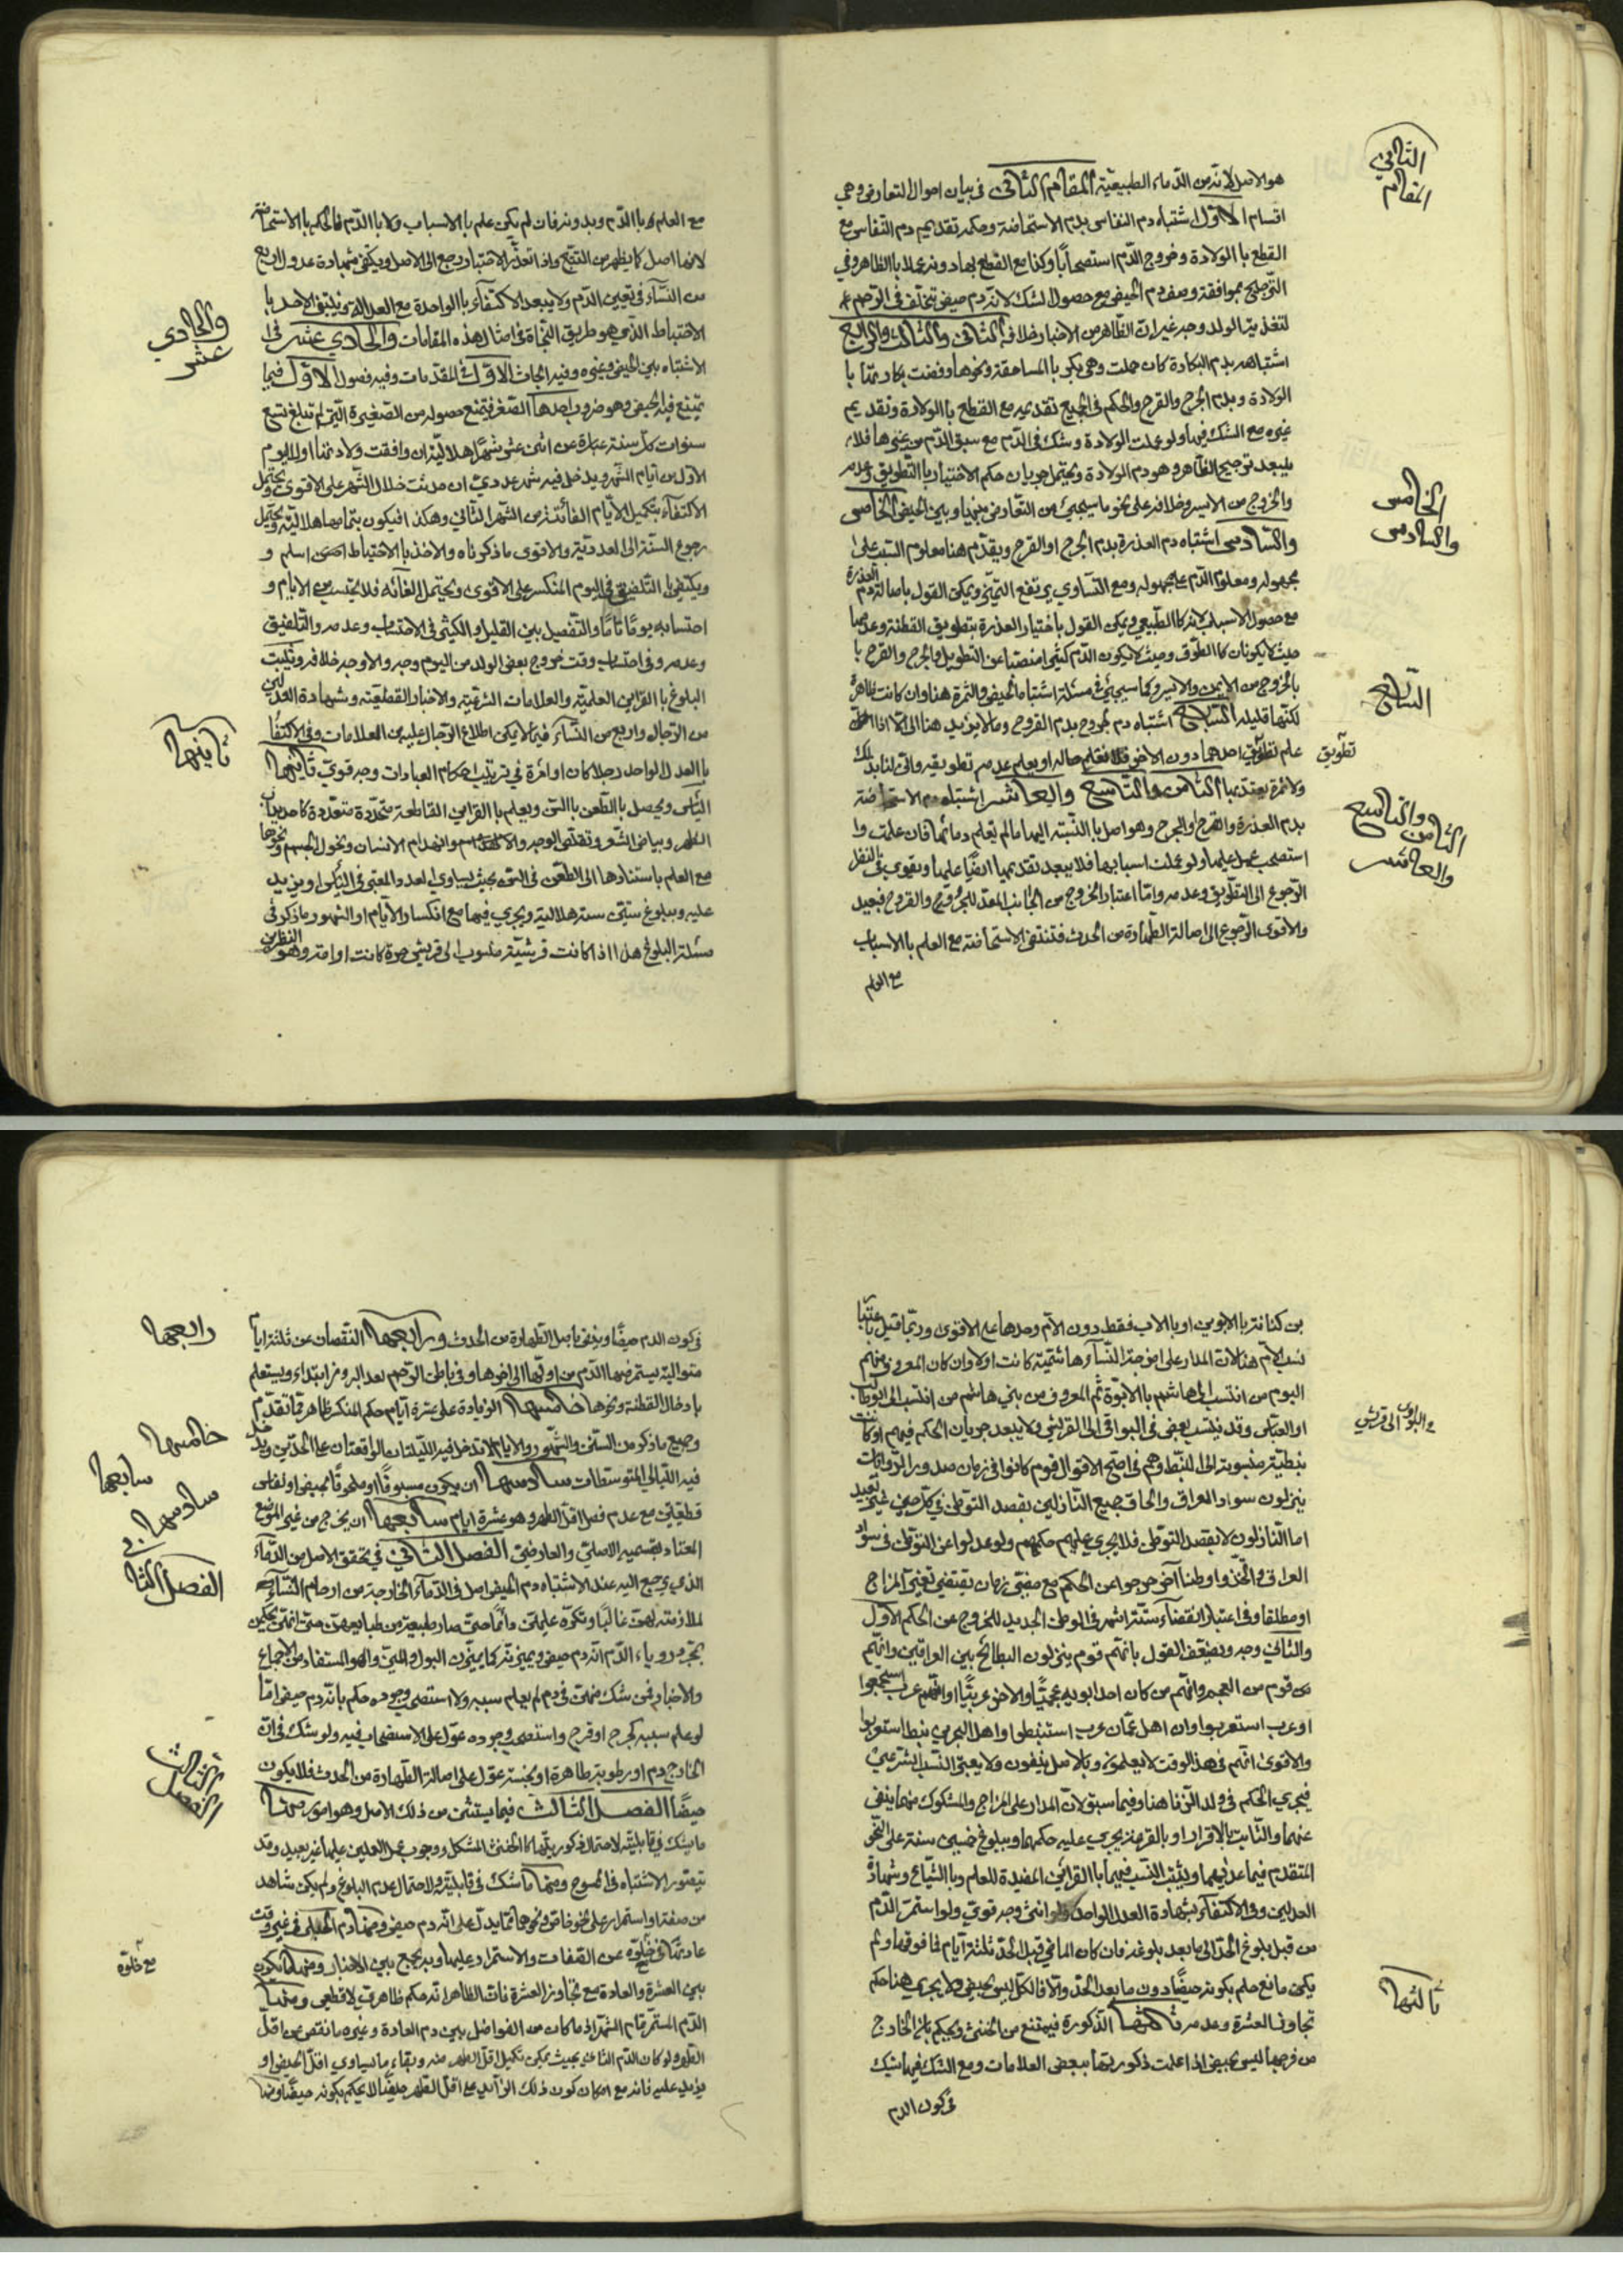 الثاني
المقام
هو الاصل لانه من الدماء الطبيعية المقام الثاني في بيان احوال التعارض وهي
اقسام الاول اشتباه دم النفاس بدم الاستحاضة وحكمه تقديم دم النفاس مع
القطع بالولادة وخروج الدم استصحابا وكذا مع القطع بها دونه عملا بالظاهر وفي
الترجيح بموافقة وصف دم الحيض مع حصول الشك لانه دم حيض تخلف في الرحم
لتغذية الولد وجه غير ان الظاهر من الاخبار خلافه الثاني والثالث والرابع
اشتباهه بدم البكارة كان حملت وهي بكر بالمساحقة ونحوها وفضت بكارتها با
الولادة وبدم الجرح والقرح والحكم في الجميع تقديمه مع القطع بالولادة وتقديم
غيره مع الشك فيها ولو علمت الولادة وشك في الدم مع سبق الدم من غيرها فلا
يبعد ترجيح الظاهر وهو دم الولادة ويحتمل جريان حكم الاختبار بالتطويق وعدمه
والخروج من الايسر وخلافه على نحو ما سيجيئ من التعارض بينها وبين الحيض الخامس
والسادس اشتباه دم العذرة بدم الجرح او القرح ويقدم هنا معلوم السبب على
مجهوله ومعلوم الدم على مجهوله ومع التساوي يرتفع التميز ويمكن القول باصالة دم العذرة
مع حصول الاسباب لانه كالطبيعي ويمكن القول باختبار العذرة بتطويق القطنة وعدمها
حيث لا يكونان كالطوق وحيث لا يكون الدم كثيرا منصبا عن التطويل والجرح والقرح با
بالخروج من الايمن والايسر وكما سيجيئ في مسئلة اشتباه الحيض والثمرة هنا وان كانت ظاهرة
لكنها قليلة السابع اشتباه دم الجروح بدم القروح وما لا يزيد هنا الى الا اذا
علم تطويق احدهما دون الاخر فلا نعلم حاله او يعلم عدم تطويقه واني لنا بذلك
ولا ثمرة يعتد بها الثامن والتاسع والعاشر اشتباه دم الاستحاضة
بدم العذرة والقرح والجرح وهو اصل بالنسبة اليها مالم تعلم دمائها فان علمت وا
استصحب عمل عليها ولو علمت اسبابها فلا يبعد تقديمها ايضا عليها ويقوى في النظر
الرجوع الى التطويق وعدمه واما اعتبار الخروج من الجانب المعد للجروح والقروح فبعيد
والاقوى الرجوع الى اصالة الطهارة من الحدث فتنتفى الاستحاضة مع العلم بالاسباب
مع العلم
الخامس
والسادس
السابع
تطويق
الثامن والتاسع
والعاشر
مع العلم بالدم وبدونه فان لم يكن علم بالاسباب ولا بالدم فالحكم بالاستحاضة
لانها اصل كما يظهر من التتبع واذا تعذر الاختبار رجع الى الاصل ويكتفى بشهادة عدول اربع
من النساء في تعيين الدم ولا يبعد الاكتفاء بالواحدة مع العدالة ونبتغي الاخذ با
الاحتياط الذي هو طريق النجاة في امثال هذه المقامات والحادي عشر في ا
الاشتباه بين الحيض وغيره وفيه ابحاث الاول في المقدمات وفيه فصول الاول فيما
يمتنع فيه الحيض وهو ضروب احدها الصغر فيمتنع حصوله من الصغيرة التي لم تبلغ تسع
سنوات كل سنة عبارة عن اثني عشر شهرا هلالية ان وافقت ولادتها اول اليوم
الاول من ايام الشهر ويدخل فيه شهر عددي ان حدثت خلال الشهر على الاقوى ويحتمل
الاكتفاء بتكميل الايام الفائتة من الشهر الثاني وهكذا فيكون بتمامها هلالية ويحتمل
رجوع السنة الى العددية والاقوى ما ذكرناه والاخذ بالاحتياط اسلم و
ويكتفى بالتلفيق في اليوم المنكسر على الاقوى ويحتمل الغائه فلا يحتسب من الايام و
احتسابه يوما تاما والتفصيل بين القليل والكثير في الاحتساب وعدمه والتلفيق
وعدمه وفي احتساب وقت خروج بعض الولد من اليوم وجه والاوجه خلافه ويثبت
البلوغ بالقراين العلمية والعلامات الشرعية والاخبار القطعية وشهادة العدلين
من الرجال واربع من النساء فيما لا يمكن اطلاع الرجال عليه من العلامات وفي الاكتفاء
بالعدل الواحد رجلا كان او امرأة في ترتيب احكام العبادات وجه قوي ثانيها
الياس ويحصل بالطعن بالسن ويعلم بالقراين القاطعة متحدة متعددة كاحديداب
الظهر وبياض الشعر وتقلص الوجه وانهدام الاسنان ونحول الجسم ونحوها
مع العلم باستنادها الى الطعن في السن بحيث يساوي العدد المعتبر في الياس او يزيد
عليه وببلوغ ستين سنة هلالية ويجري فيها مع انكسار الايام او الشهور ما ذكر في
مسئلة البلوغ هذا اذا كانت قرشية منسوب الى قريش حرة كانت او امة وهو النضر
والحادي
عشر
ثانيها
بن كنانة بالابوين او بالاب فقط دون الام وحدها على الاقوى وربما قيل باعتبار
نسب الام هنا لان المدار على امزجة النساء هاشمية كانت اولا وان كان المعروف منهم
اليوم من انتسب الى هاشم بالابوة ثم المعروف من بني هاشم من انتسب الى ابوطالب
او العباس وقد ينتسب بعض في البواقي الى القريش ولا يبعد جريان الحكم فيهم او كانت
نبطية منسوبة الى النبط وهم في اصح الاقوال قوم كانوا في زمان صدور الروايات
ينزلون سواد العراق والحاق جميع النازلين بقصد التوطن في كل حين غير بعيد
اما النازلون لا بقصد التوطن فلا يجري عليهم حكمهم ولو عدلوا عن التوطن في سواد
العراق واتخذوا وطنا آخر خرجوا عن الحكم مع مضي زمان يقتضي تغير المزاج
او مطلقا وفي اعتبار انقضاء ستة اشهر في الوطن الجديد للخروج عن الحكم الاول
والثاني وجه ويضعف القول بانهم قوم ينزلون البطائح بين العراقين وانهم
من قوم من العجم وانهم من كان احد ابويه عجميا والاخر عربيا او انهم عرب استعجموا
او عرب استعربوا وان اهل عمان عرب استنبطوا واهل البحرين نبط استعربوا
والاقوى انهم في هذا الوقت لا يعلمون وبالاصل ينفون ولا يعتبر النسب الشرعي
فيجري الحكم في ولد الزنا هنا وفيما سبق لان المدار على المزاج والمشكوك منهما ينفى
عنهما والثابت بالاقرار او بالقرينة يجري عليه حكمهما وببلوغ خمسين سنة على النحو
المتقدم فيما عداهما ويثبت النسب فيهما بالقرائن المفيدة للعلم وبالشياع وشهادة
العدلين وفي الاكتفاء بشهادة العدل الواحد ولو انثى وجه قوي ولو استمر الدم
من قبل بلوغ الحد الى ما بعد بلوغه فان كان الماضي قبل الحد ثلثة ايام فما فوقها ولم
يكن مانع حكم بكونه حيضا دون ما بعد الحد والا فالكل ليس بحيض ولا يجري هنا حكم
تجاوز العشرة وعدمه ثالثها الذكورة فيمتنع من الخنثى ويحكم بان الخارج
من فرجها ليس بحيض اذا علمت ذكوريتها ببعض العلامات ومع الشك فيها يشك
في كون الدم
والبواقي الى قريش
ثالثها
في كون الدم حيضا وينفى باصل الطهارة من الحدث ورابعها النقصان عن ثلثة ايام
متوالية يستمر فيها الدم من اولها الى اخرها وفي باطن الرحم بعد البروز ابتداء ويستعلم
بادخال القطنة ونحوها خامسها الزيادة على عشرة ايام حكم المنكر ظاهر مما تقدم
وجميع ما ذكر من السنين والشهور والايام لا تدخل فيه الليلتان الواقعتان على الحدين ويدخل
فيه الليالي المتوسطات سادسها ان يكون مسبوقا او ملحوقا بحيض او نفاس
قطعيين مع عدم فصل اقل الطهر وهو عشرة ايام سابعها ان يخرج من غير الموضع
المعتاد بقسميه الاصلي والعارضي الفصل الثاني في تحقق الاصل من الدماء
الذي يرجع اليه عند الاشتباه دم الحيض اصل في الدماء الخارجة من ارحام النساء
لملازمته لهن غالبا وتكرره عليهن دائما حتى صار طبيعة من طبايعهن حتى انهن يحكمن
بمجرد روياء الدم انه دم حيض ويميزنه كما يميزن البول والمني وهو المستفاد من الاجماع
والاخبار فمن شك منهن في دم لم يعلم سببه ولا استصحب وجوده حكم بانه دم حيض اما
لو علم سببه كجرح او قرح واستصحب وجوده عول على الاستصحاب فيه ولو شك في ان
الخارج دم او رطوبة طاهرة او نجسة عول على اصالة الطهارة من الحدث فلا يكون
حيضا الفصل الثالث فيما يستثنى من ذلك الاصل وهو امور منها
ما يشك في قابليته لاحتمال ذكوريتها كالخنثى المشكل ووجوب عمل العملين عليها غير بعيد وقد
يتصور الاشتباه في الممسوح ومنها ما شك في قابليته لاحتمال عدم البلوغ ولم يكن شاهد
من صفة او استمرار على نحو خاص ونحوهما مما يدل على انه دم حيض ومنها دم الحبلى في غير وقت
عادتها في خلوه عن الصفات والاستمرار عليها وبه يجمع بين الاخبار ومنها ما تكرره
بين العشرة والعادة مع تجاوز العشرة فان الظاهر انه حكم ظاهري لا قطعي ومنها
الدم المستمر تمام الشهر اذ ما كان من الفواضل بين دم العادة وغيره ما نقص عن اقل
الطهر ولو كان الدم الثاني بحيث يمكن تكميل اقل الطهر منه وبقاء ما يساوي اقل الحيض او
يزيد عليه فانه مع امكان كون ذلك الزائد على اقل الطهر حيضا لا يحكم بكونه حيضا ومنها
رابعها
خامسها
سابعها
سادسها
الفصل الثاني
الثالث
الفصل
مع خلوه